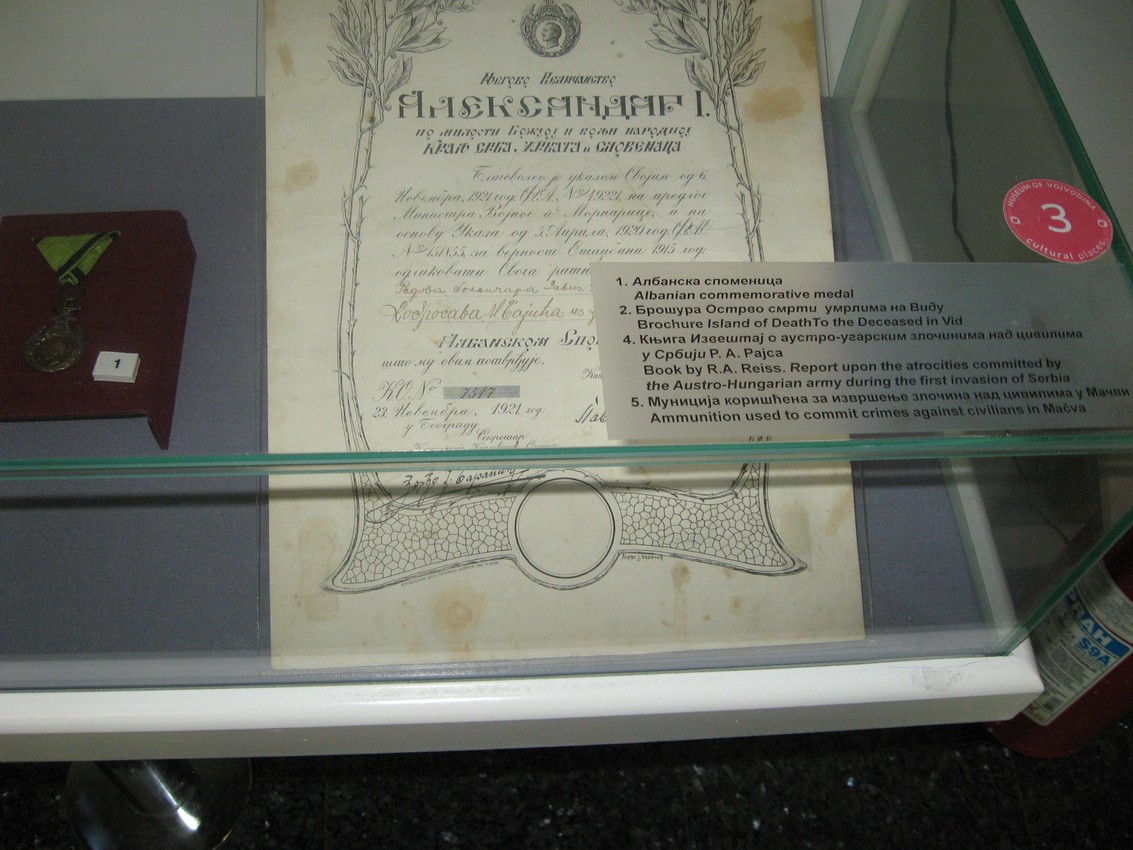 Његово Величанство
АЛЕКСАНДАР I.
по милости Божјој и вољи народној
Краљ Срба, Хрвата и Словенаца
Благоволео је указом Својим од 6.
Новембра, 1921 год. на предлог
Министра Војног и Морнарице, а на
основу Указа од 5. Априла, 1920 год.
за верност Отаџбини 1915 год.
одликовати Свога
Албанском
што му овим потврђује.
7317
23. Новембра, 1921. год.
у Београду
Секретар
1
1. Албанска споменица
Albanian commemorative medal
2. Брошура Острво смрти умрлима на Виду
Brochure Island of DeathTo the Deceased in Vid
4. Књига Извештај о аустро-угарским злочинима над цивилима
у Србији Р. А. Рајса
Book by R.A. Reiss. Report upon the atrocities committed by
the Austro-Hungarian army during the first invasion of Serbia
5. Муниција коришћена за извршење злочина над цивилима у Мачви
Ammunition used to commit crimes against civilians in Mačva
MUSEUM OF VOJVODINA
3
cultural places
S9A